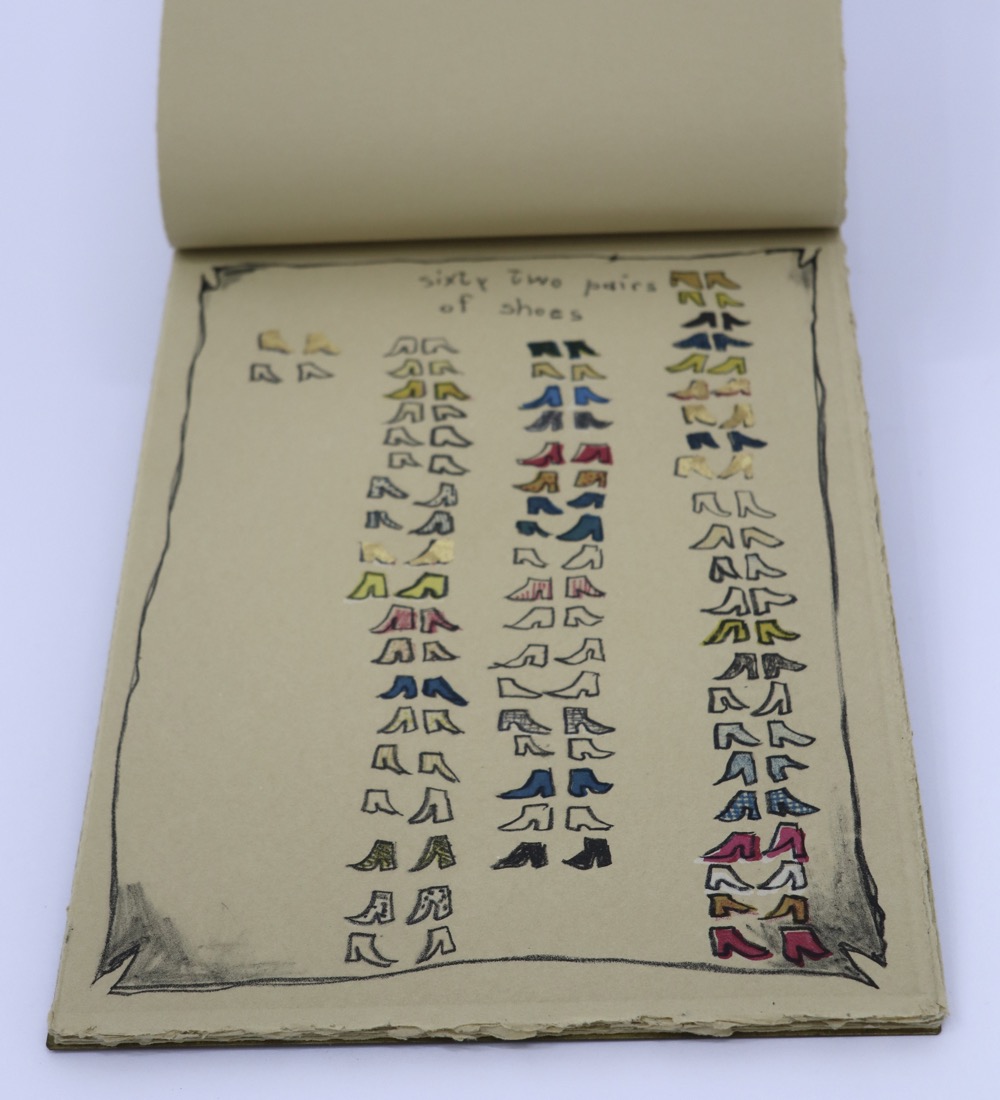 sixty two pairs
of shoes